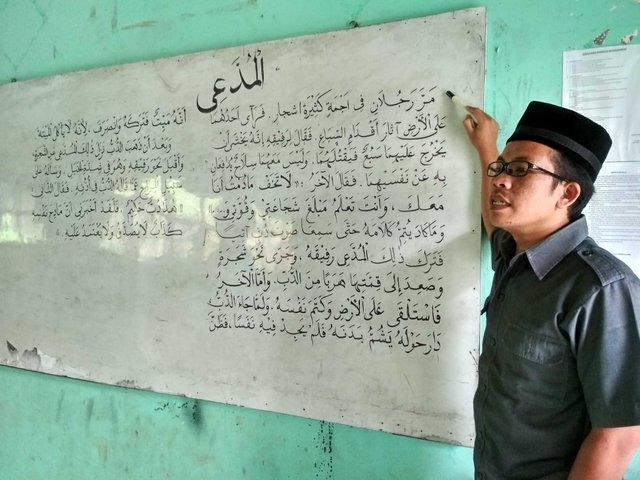 المُدَّعى
مَرَّ رَجُلَانِ فى اَجَمَةٍ كَثِيْرَةِ اشجار. فرآى احدُهما
عَلَى الْأَرْضِ آثارَ أقدامِ السِّبَاعِ. فَقَالَ لِرَفِيْقِهِ إنَّهُ يَخْشَى أنْ
يَخْرُجَ عَلَيْهِمَا سَبُعٌ فَيَقْتُلَهُمَا. وَلَيْسَ مَعَهُمَا سِلَاحٌ يُدَافِعَانِ
بِهِ عَنْ نَفْسَيْهِمَا. فَقَالَ الآخَرُ: "لَا تَخَفْ مَادُمْتُ أنا
مَعَكَ، وَأَنْتَ تَعْلَمُ مَبْلَغَ شَجَاعَتِي وَقُوَّتِي..
وَمَا كَادَ يُتِمُّ كَلَامَهُ حَتَّى سَمِعَا صَوْتَ دُبٍّ آتٍ
فَتَرَكَ ذلِكَ المُدَّعى رَفِيْقَهُ، وَجَرَى نَحْوَ شَجَرَةٍ
وَصَعِدَ إلَى قِمَّتِهَا هَرَبًا مِنَ الدُّبِّ. وَأمَّا الآخَرُ
فَاسْتَلْقَى عَلَى الْأَرْضِ وَكَتَمَ نَفَسَهُ. وَلَمَّا جَاءَ الدُّبُّ
دَارَ حَوْلَهُ يَشُمُّ بَدَنَهُ فَلَمْ يَجِدْ فِيْهِ نَفَسًا، فَظَنَّ
أنَّهُ مَيِّتٌ فَتَرَكَهُ وَانْصَرَفَ، لِأنَّهُ لَايَأْكُلُ الْمَيْتَةَ
وَبَعْدَ أنْ ذَهَبَ الدُّبُّ نَزَلَ ذلِكَ المُدَّعى مِنَ الشَّجَرَةِ
وَأقْبَلَ نَحْوَ رَفِيْقِهِ وَهُوَ فِي شِدَّةِ الخَجَلِ. وَسَألَهُ عَلَى
سَبِيْلِ المزاح عَمَّا قالهُ الدُّبُّ فى أُذُنِهِ. فَقَالَ الثَّانى
حَكِيْمٌ. فَلَقَدْ أخْبَرَنِي أنَّ مَادِحَ نَفْسِهِ
كَذَّابٌ لَايُصَدَّقُ وَلَا يُعْتَمَدُ عَلَيْهِ.